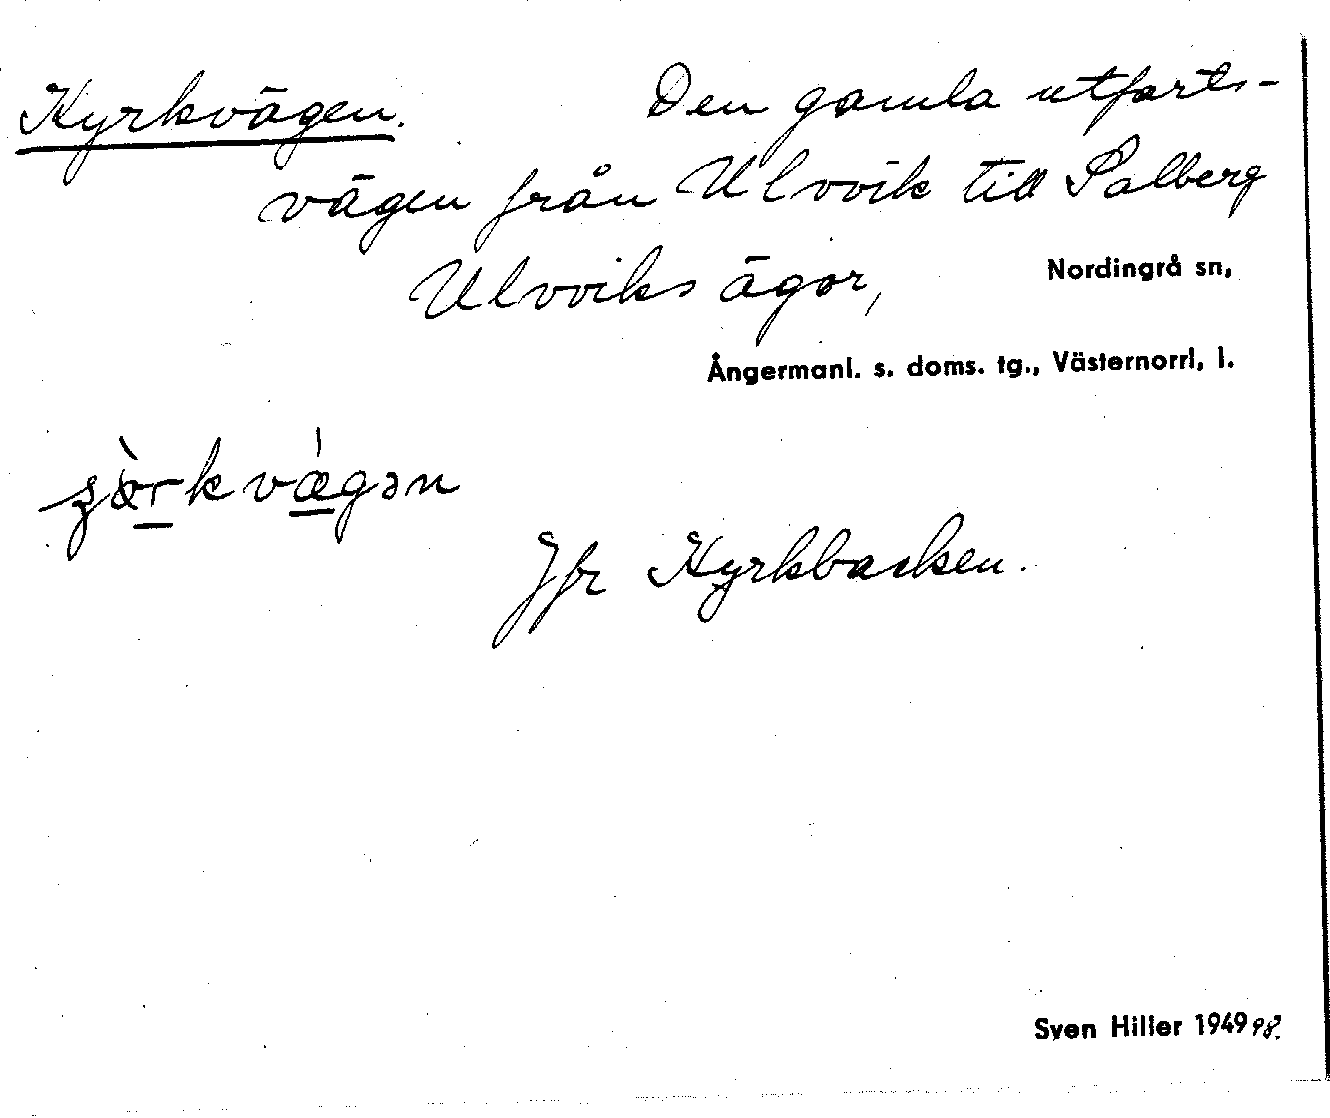 Kyrkvägen. Den gamla utfarts-
vägen från Ulvvik till Salberg
Ulvviks ägor, Nordingrå sn,
Ångermanl. s. doms. tg., Västernorrl. l.
Jfr Kyrkbacken.
Sven Hiller 1949 98.